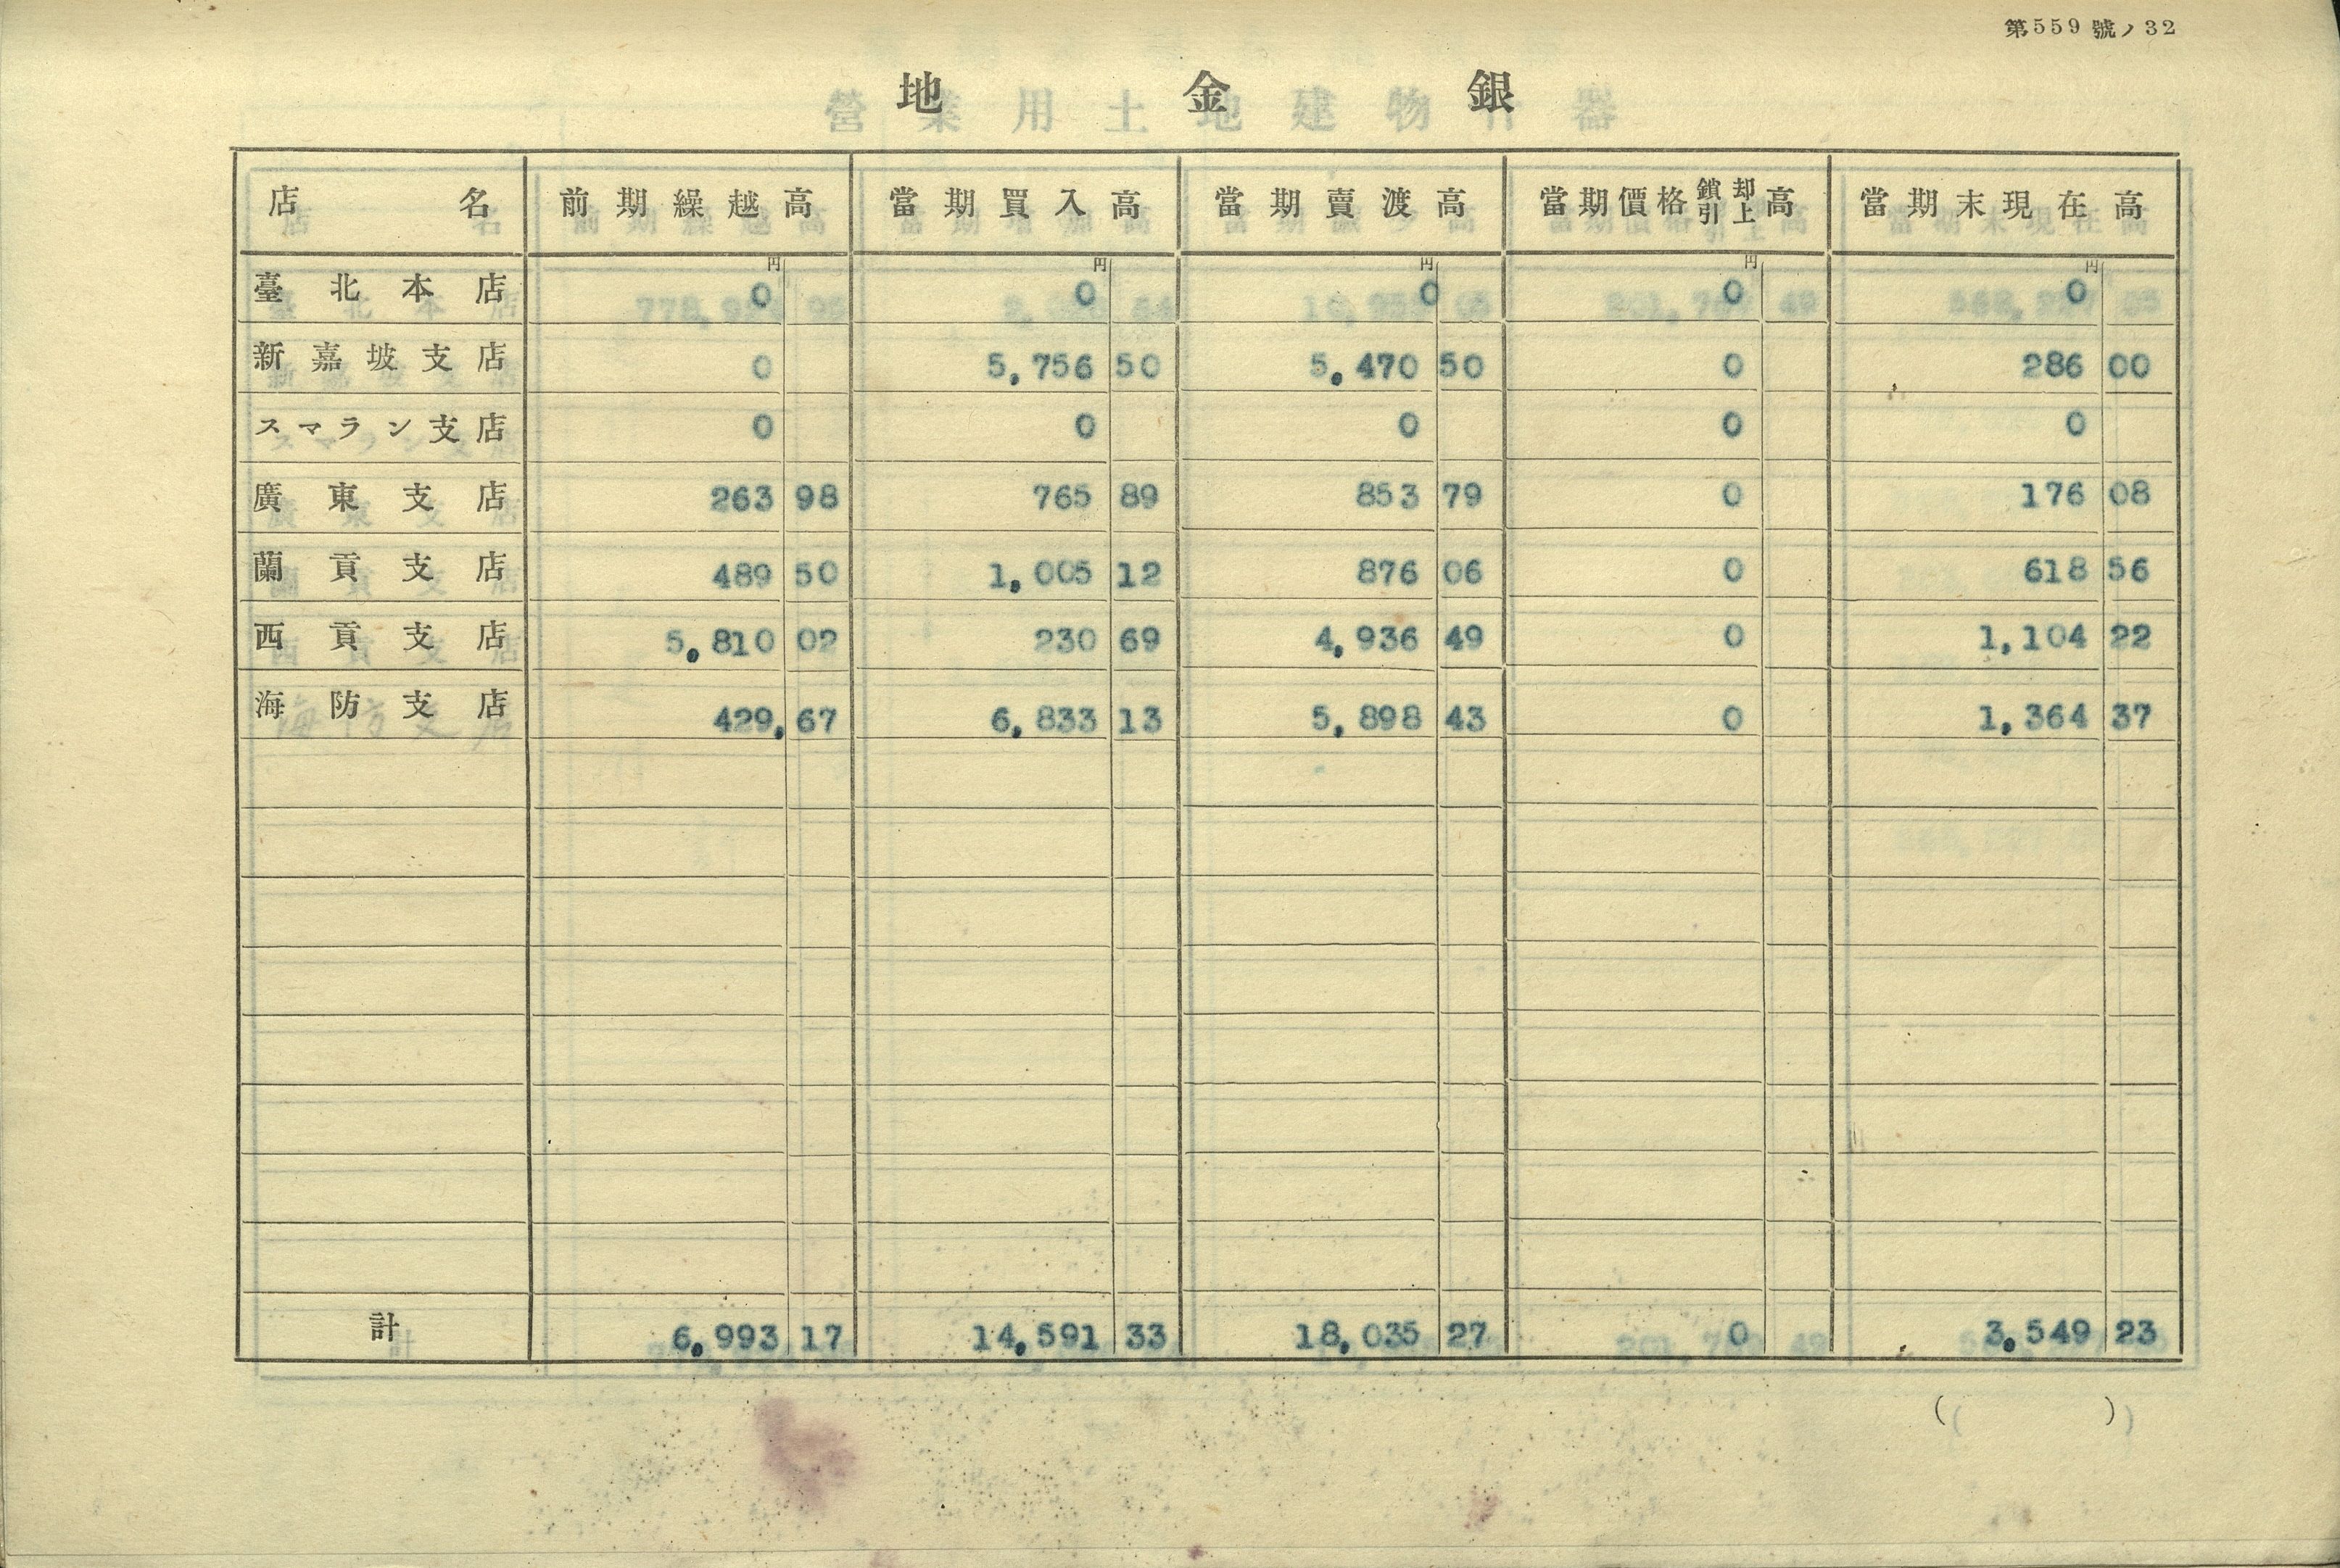 第559號ノ32
地金銀
店名 前期繰越高 當期買入高 當期賣渡高 當期價格鎖却引上高 當期末現在高
円 円 円 円 円
臺北本店 0 0 0 0 0
新嘉坡支店 0 5,756 50 5,470 50 0 286 00
スマラン支店 0 0 0 0 0
廣東支店 263 98 765 89 853 79 0 176 08
蘭貢支店 489 50 1,005 12 876 06 0 618 56
西貢支店 5,810 02 230 69 4,936 49 0 1,104 22
海防支店 429,67 6,833 13 5,898 43 0 1,364 37
計 6,993 17 14,591 33 18,035 27 0 3,549 23
( )